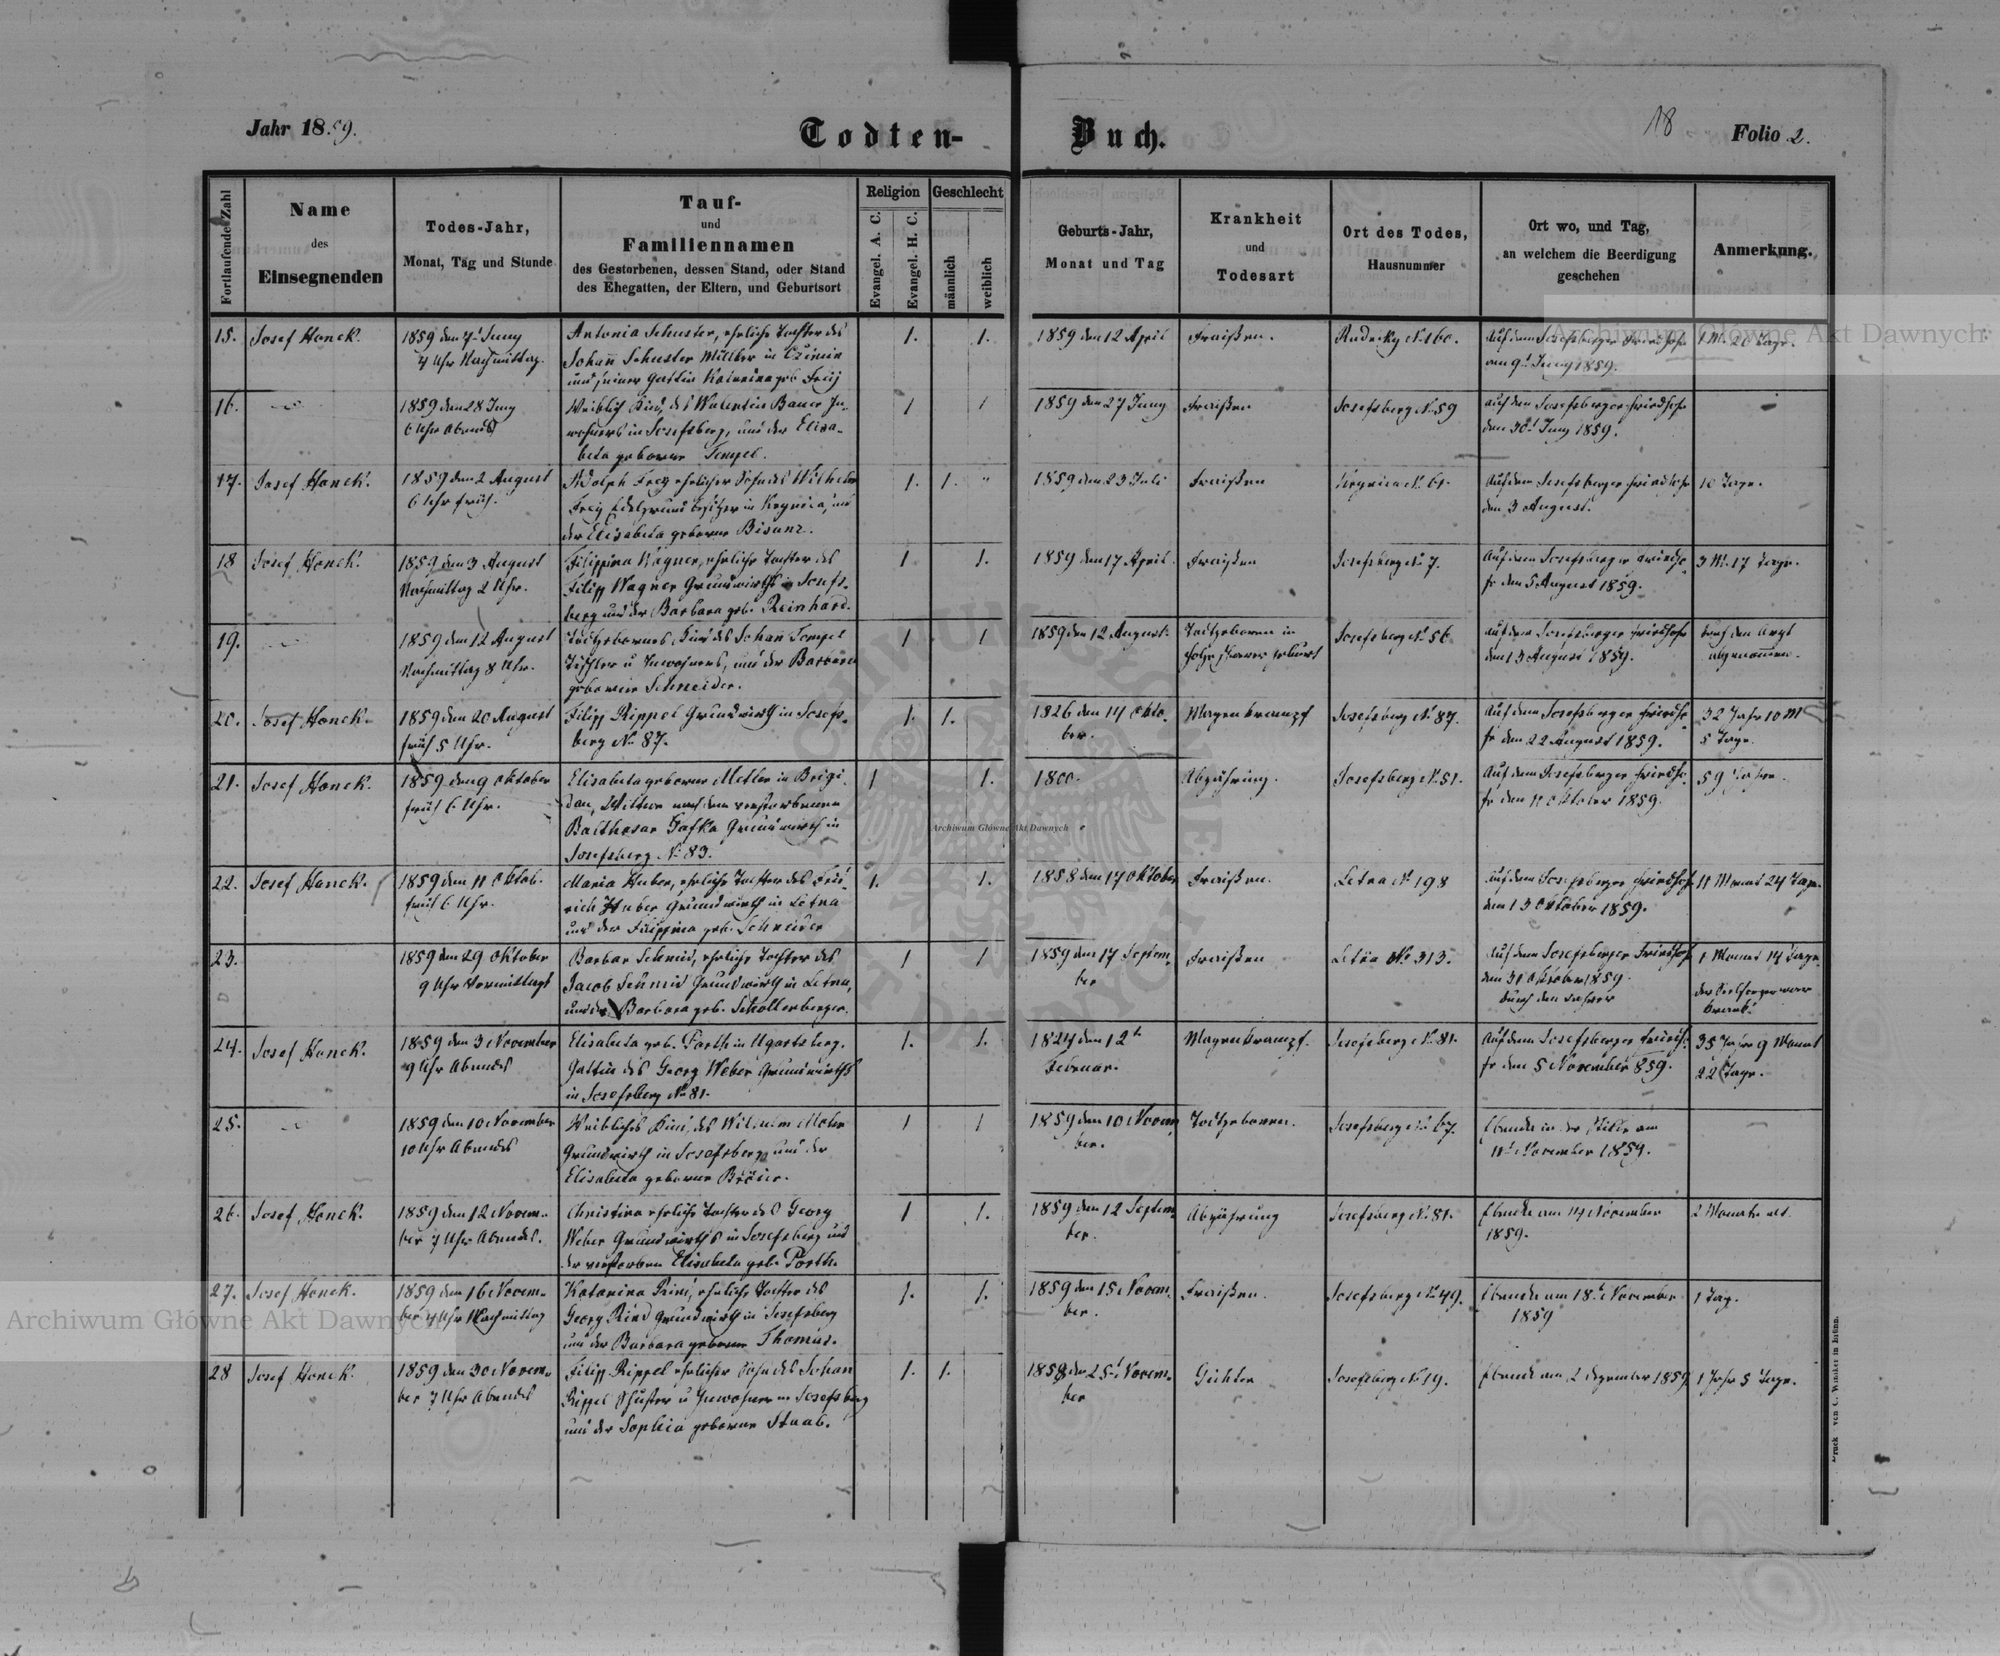 Jahr 1859.
Todten-Buch.
18
Folio 2.
Fortlaufende Zahl
Name
des
Einsegnenden
Todes-Jahr,
Monat, Tag und Stunde
Tauf-
und
Familiennamen
des Gestorbenen, dessen Stand, oder Stand
des Ehegatten, der Eltern, und Geburtsort
Religion
Evangel. A. C.
Evangel. H. C.
Geschlecht
männlich
weiblich
Geburts-Jahr,
Monat und Tag
Krankheit
und
Todesart
Ort des Todes,
Hausnummer
Ort wo, und Tag,
an welchem die Beerdigung
geschehen
Anmerkung.
15.
Josef Honek.
1859 den 7t Juny
4 Uhr Nachmittag.
Antonia Schuster, eheliche Tochter des
Johann Schuster Müller in
und seiner Gattin Katarina geb. Freÿ
1.
1.
1859 den 12 April
Fraißen.
N 160.
Auf dem Josefsberger Friedhofe
am 9t Juny 1859.
1 M. 26 Tage.
16.
1859 den 28 Juny
6 Uhr Abends
Weiblich Kind, des Walentin Bauer In-
wohners in Josefsberg, und der Elisa-
beta geborne Tempel.
1
1
1859 den 27 Juny
Fraißen
Josefsberg N 59
auf dem Josefsberger Friedhofe
den 30t Juny 1859.
17.
Josef Honek.
1859 den 2 August
6 Uhr früh.
Adolph Frey ehelicher Sohn des Wilhelm
Frey Edelgrund besitzer in Kŕgnica, und
der Elisabeta geborne Bisanz.
1.
1.
1859 den 23 Juli
Fraißen
N. 61.
Auf dem Josefsberger Friedhofe
den 3 August.
10 Tage.
18
Josef Honek.
1859 den 3 August
Nachmittag 2 Uhr.
Filippina Wagner, eheliche Tochter des
Filipp Wagner Grundwirths in Josefs-
berg und der Barbara geb. Reinhard.
1.
1.
1859 den 17 April.
Fraißen
Josefsberg N. 7.
Auf dem Josefsberger Friedho-
fe den 5 August 1859.
3 M. 17 Tage.
19.
1859 den 12 August
Nachmittag 8 Uhr.
Todtgebornes Kind des Johan Tempel
Tischler u Inwohners, und der Barbara
geborne Schneider.
1
1
1859 den 12 August.
Todtgeboren in
Folge schwerer Geburt
Josefsberg N 56
auf dem Josefsberger Friedhofe
den 13 August 1859.
durch den Arzt
abgenommen.
20.
Josef Honek.
1859 den 20 August
früh 5 Uhr.
Filipp Rippel Grundwirth in Josefs-
berg No 87.
1.
1.
1826 den 14 Okto-
ber.
Magenkrampf
Josefsberg N. 87.
Auf dem Josefsberger Friedho-
fe den 22 August 1859.
32 Jahr 10 M
5 Tage.
21.
Josef Honek.
1859 den 9 Oktober
früh 6 Uhr.
Elisabeta geborne Metler in Brigi-
dau, Wittwe nach dem verstorbenen
Balthasar Grundwirth in
Josefsberg N. 83.
1
1.
1800.
Abzährung.
Josefsberg N. 51.
Auf dem Josefsberger Friedho-
fe den 11 Oktober 1859.
59 Jahre.
22.
Josef Honek.
1859 den 11 Oktob.
früh 6 Uhr.
Maria Huber, eheliche Tochter des Frid-
rich Huber Grundwirth in Letna
und der Filippina geb. Schneider
1.
1.
1858 den 17 Oktober
Fraißen.
Letna N 198
auf dem Josefsberger Friedhofe
den 13 Oktober 1859.
11 Monat 24 Tage.
23.
1859 den 29 Oktober
9 Uhr Vormittagt
Barbar Schmid, eheliche Tochter des
Jacob Schmid Grundwirth in Letna,
und der Barbara geb. Schollenberger.
1
1
1859 den 17 Septem-
ber
Fraißen
Letna No 313.
auf dem Josefsberger Friedhofe
den 31 Oktober 1859.
durch den Lehrer
1 Monat 14 Tage.
der Seelsorger war
krank.
24.
Josef Honek.
1859 den 3 November
9 Uhr Abends
Elisabeta geb. Porth in Ugartsberg.
Gattin des Georg Weber Grundwirths
in Josefsberg No 81.
1.
1.
1824 den 12t
Februar.
Magenkrampf.
Josefsberg N. 81.
Auf dem Josefsberger Friedho-
fe den 5 November 859.
35 Jahr 9 Monat
22 Tage.
25.
1859 den 10 November
10 Uhr Abends
Weibliches Kind, des Wilhelm Mohr
Grundwirth in Josefsberg und der
Elisabeta geborne
1
1
1859 den 10 Novem-
ber.
Todtgeboren.
Josefsberg N. 67.
Ebenda in der Stille am
11t November 1859.
26.
Josef Honek.
1859 den 12 Novem-
ber 7 Uhr Abends.
Christina eheliche Tochter des Georg
Weber Grundwirths in Josefsberg und
der verstorbene Elisabeta geb. Porth.
1
1.
1859 den 12 Septem-
ber.
Abzährung
Josefsberg N. 81.
Ebenda am 14 November
1859.
2 Monate alt.
27.
Josef Honek.
1859 den 16 Novem-
ber 4 Uhr Nachmittag
Katarina Rind, eheliche Tochter des
Georg Rind Grundwirth in Josefsberg
und der Barbara geborne Thomas.
1.
1.
1859 den 15 Novem-
ber.
Fraißen.
Josefsberg N. 49.
Ebenda am 18t November
1859
1 Tag.
28
Josef Honek.
1859 den 30 Novem-
ber 7 Uhr Abends
Filipp Rippel ehelicher Sohn des Johan
Rippel Schuster u Inwohner in Josefsberg
und der Sophia geborne Staab.
1.
1.
1858 den 25t Novem-
ber
Gichter
Josefsberg N. 19.
Ebenda am 2 Dezember 1859
1 Jahr 5 Tage.
Druck von C. Winiker in Brünn.
Archiwum Główne Akt Dawnych
Archiwum Główne Akt Dawnych
Archiwum Główne Akt Dawnych